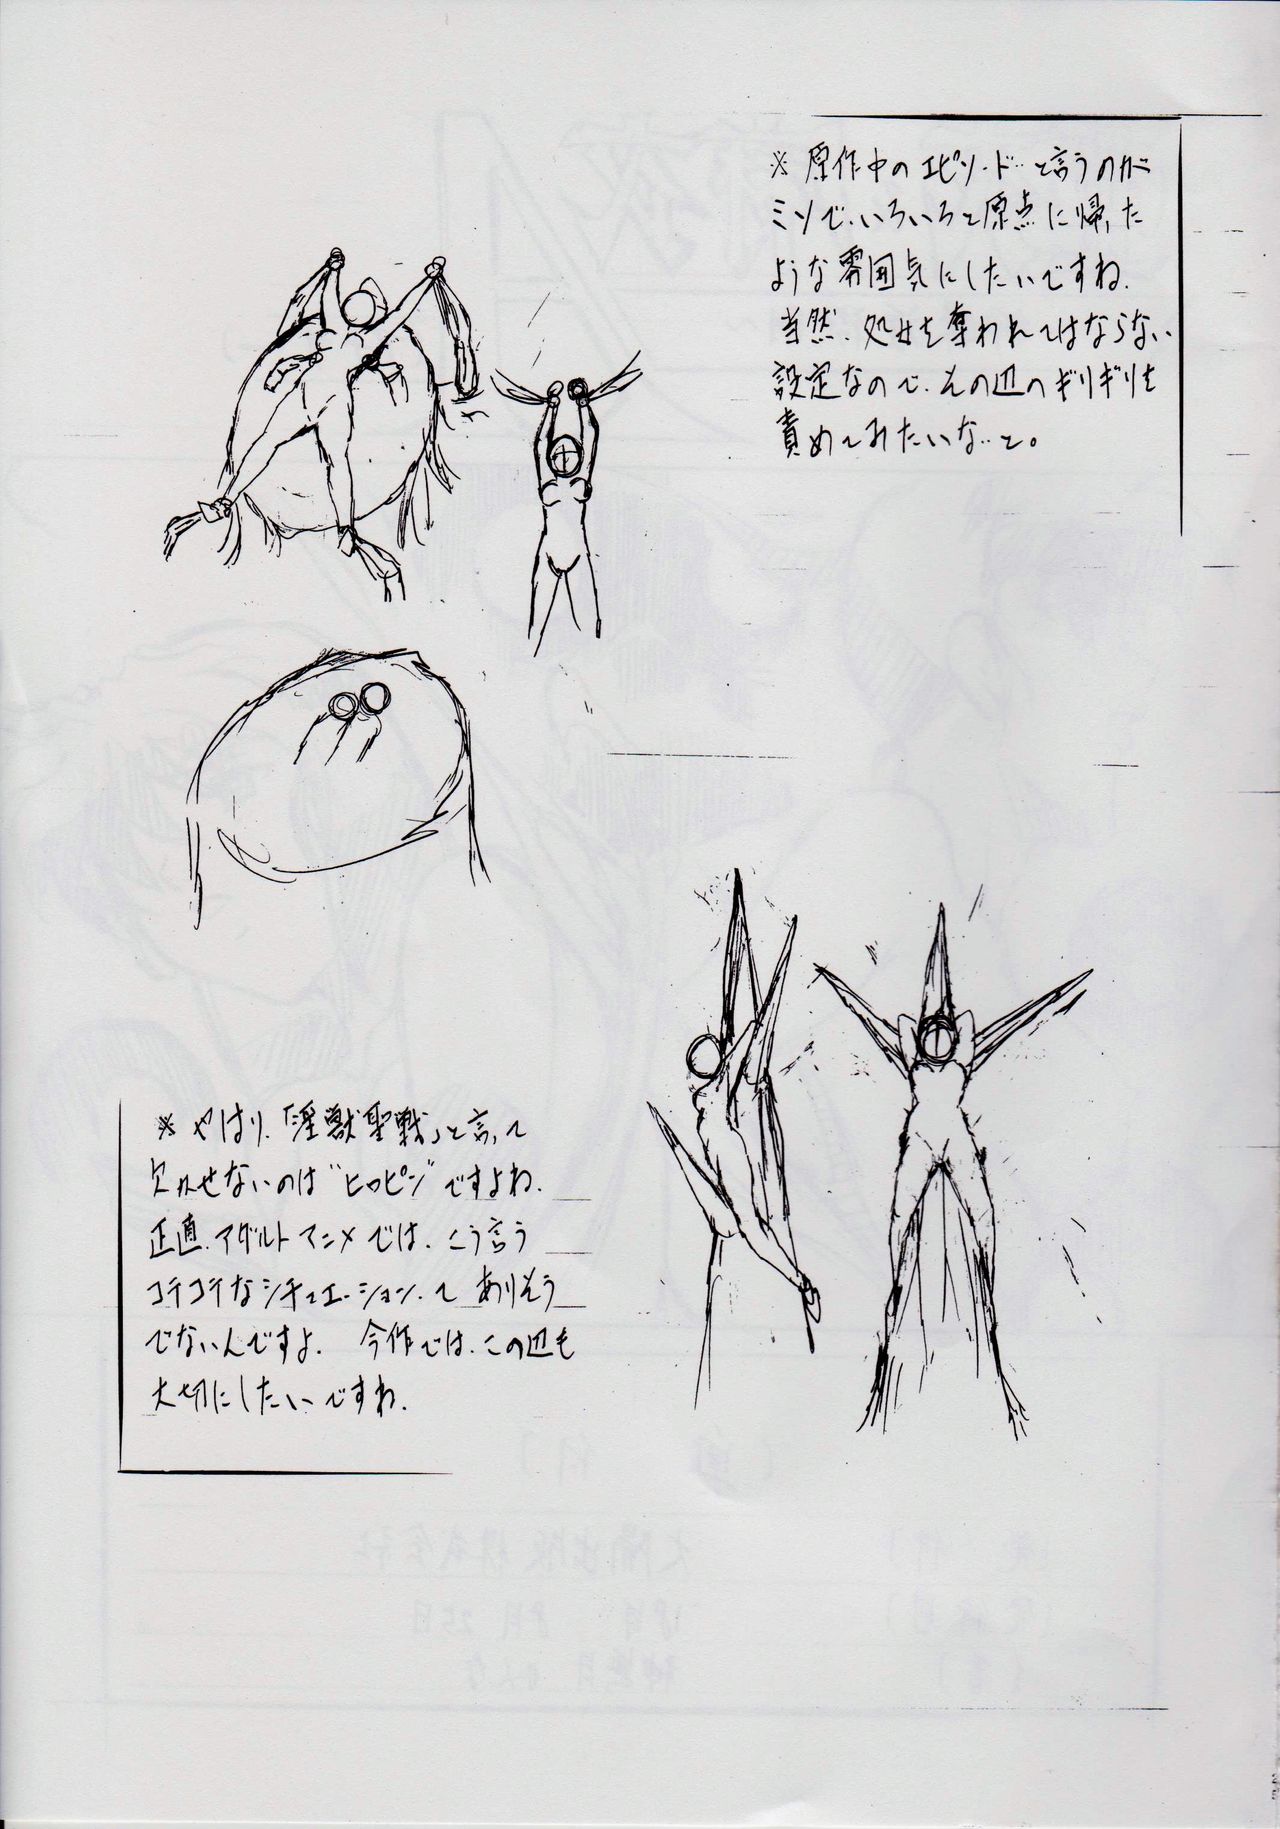 ※ 原作中のエピソード…と言うのが
ミソで、いろいろと原点に帰った
ような雰囲気にしたいですね。
当然、処女を奪われてはならない
設定なので、その辺のギリギリを
責めてみたいな…と。
※ やはり、「淫獣聖戦」と言って
欠かせないのは“ヒロピン”ですよね。
正直、アダルトアニメでは、こう言う
コテコテなシチュエーションって ありそう
でないんですよ。 今作では、この辺も
大切にしたいですね。